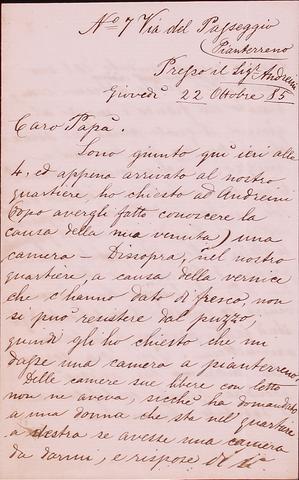 Nº 7 Via del Passeggio
Pianterreno
Presso il Sigr. Andreini
Giovedì 22 Ottobre 85
Caro Papà.
Sono giunto qui ieri alle
4, ed appena arrivato al nostro
quartiere, ho chiesto ad Andreini
(dopo avergli fatto conoscere la
causa della mia venuta) una
camera — Dissopra, nel nostro
quartiere, a causa della vernice
che c'hanno dato di fresco, non
si può resistere dal puzzo;
quindi gli ho chiesto che mi
dasse una camera a pianterreno.
Delle camere sue libere con letto
non ne aveva, sicchè ha domandato
a una donna che sta nel quartiere
a destra se avesse una camera
da darmi, e rispose di sì.